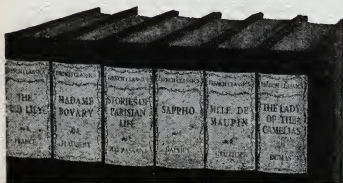 FRENCH CLASSICS
THE
RED LILY
FRANCE
FRENCH CLASSICS
MADAME
BOVARY
FLAUBERT
FRENCH CLASSICS
STORIES OF
PARISIAN
LIFE
DE MAUPASSANT
FRENCH CLASSICS
SAPPHO
DAUDET
FRENCH CLASSICS
MLLE. DE
MAUPIN
GAUTIER
FRENCH CLASSICS
THE LADY
OF THE
CAMELIAS
DUMAS